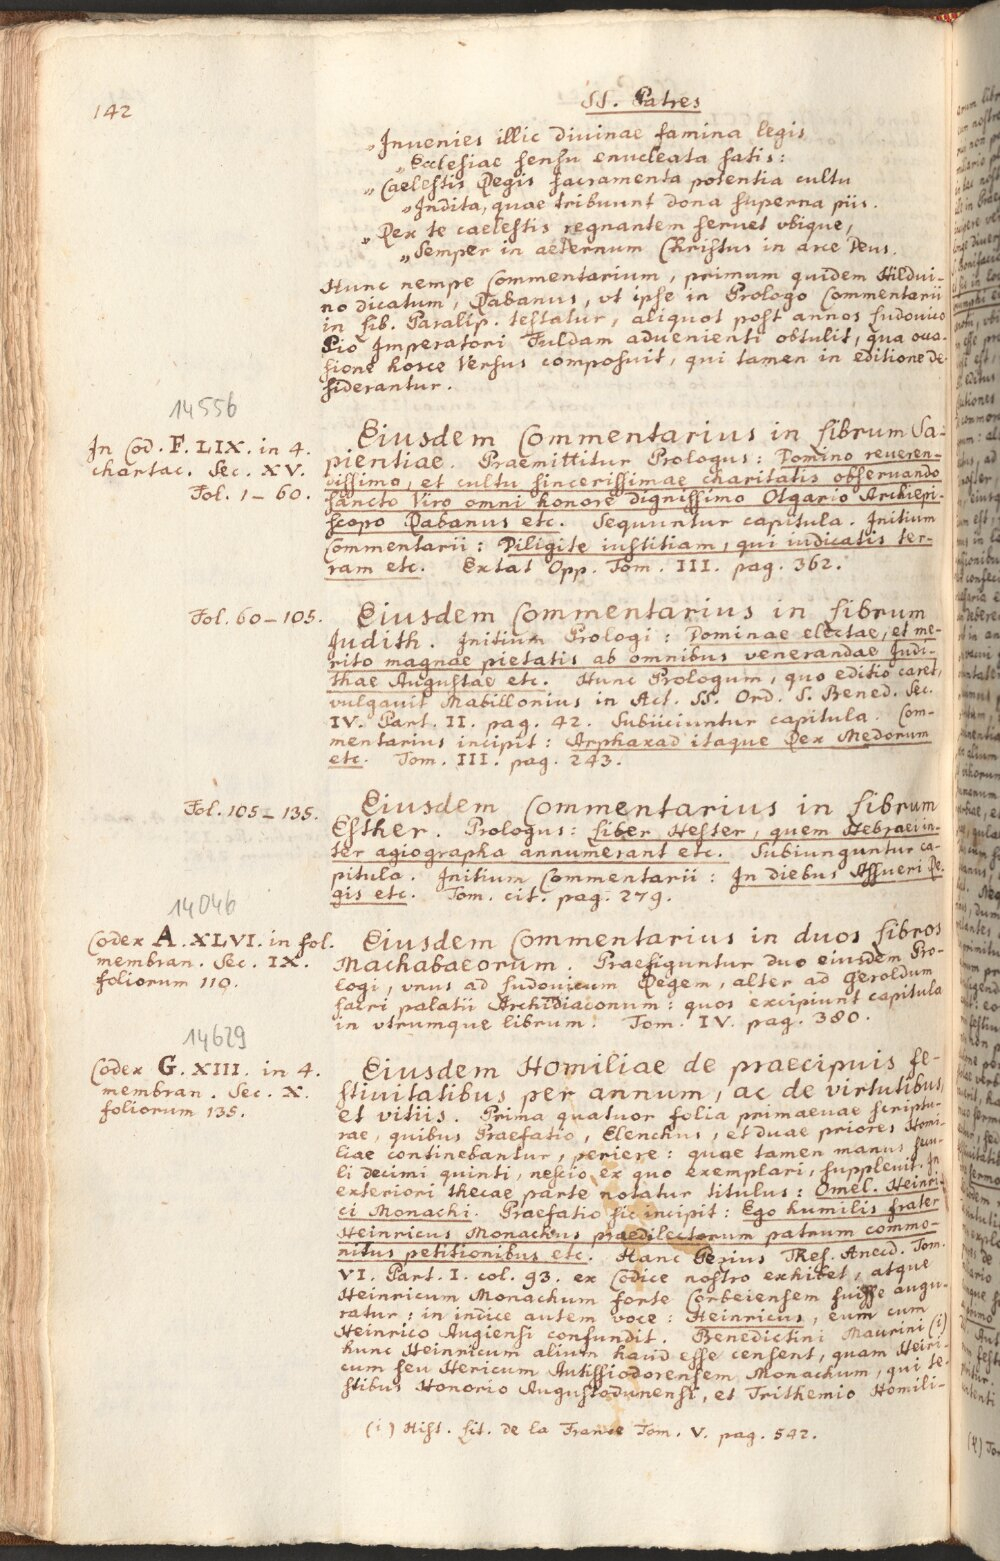 142
SS. Patres
„Inuenies illic diuinae famina legis
„Ecclesiae sensu enucleata satis:
„Caelestis Regis sacramenta potentia cultu
„Indita, quae tribuunt dona superna piis.
„Rex te caelestis regnantem seruet vbique,
„Semper in aeternum Christus in arce Deus.
Hunc nempe Commentarium, primum quidem Hildui-
no dicatum, Rabanus, vt ipse in Prologo Commentarii
in Lib. Paralip. testatur, aliquot post annos Ludouico
Pio Imperatori Fuldam aduenienti obtulit, qua occa-
sione hosce Versus composuit, qui tamen in editione de-
siderantur.
14556
In Cod. F. LIX. in 4.
chartac. Sec. XV.
Fol. 1–60.
Eiusdem Commentarius in Librum Sa-
pientiae. Praemittitur Prologus: Domino reueren-
dissimo, et cultu sincerissimae charitatis obseruando
sancto Viro omni honore dignissimo Otgario Archiepi-
scopo Rabanus etc. Sequuntur capitula. Initium
Commentarii: Diligite iustitiam, qui iudicatis ter-
ram etc. Extat Opp. Tom. III. pag. 362.
Fol. 60–105.
Eiusdem Commentarius in Librum
Judith. Initium Prologi: Dominae electae, et me-
rito magnae pietatis ab omnibus venerandae Judi-
thae Augustae etc. Hunc Prologum, quo editio caret,
vulgauit Mabillonius in Act. SS. Ord. S. Bened. Sec.
IV. Part. II. pag. 42. Subiiciuntur capitula. Com-
mentarius incipit: Arphaxad itaque Rex Medorum
etc. Tom. III. pag. 243.
Fol. 105–135.
Eiusdem Commentarius in Librum
Esther. Prologus: Liber Hester, quem Hebraei in-
ter agiographa annumerant etc. Subiunguntur ca-
pitula. Initium Commentarii: In diebus Assueri Re-
gis etc. Tom. cit. pag. 279.
14046
Codex A. XLVI. in fol.
membran. Sec. IX.
foliorum 119.
Eiusdem Commentarius in duos Libros
Machabaeorum. Praefiguntur duo eiusdem Pro-
logi, vnus ad Ludouicum Regem, alter ad Geroldum
sacri palatii Archidiaconum: quos excipiunt capitula
in vtrumque librum. Tom. IV. pag. 380.
14629
Codex G. XIII. in 4.
membran. Sec. X.
foliorum 135.
Eiusdem Homiliae de praecipuis fe-
stiuitatibus per annum, ac de virtutibus,
et vitiis. Prima quatuor folia primaeuae scriptu-
rae, quibus Praefatio, Elenchus, et duae priores Homi-
liae continebantur, periere: quae tamen manus secu-
li decimi quinti, nescio ex quo exemplari, suppleuit. In
exteriori thecae parte notatur titulus: Omel. Heinri-
ci Monachi. Praefatio sic incipit: Ego humilis frater
Heinricus Monachus praedilectorum patrum commo-
nitus petitionibus etc. Hanc Pezius Thes. Anecd. Tom.
VI. Part. I. col. 93. ex Codice nostro exhibet, atque
Heinricum Monachum forte Corbeiensem fuisse augu-
ratur: in indice autem voce: Heinricus, eum cum
Heinrico Augiensi confundit. Benedictini Maurini (i)
hunc Heinricum alium haud esse censent, quam Heiri-
cum seu Hericum Autissiodorensem Monachum, qui te-
stibus Honorio Augustodunensi, et Trithemio Homili-
(i) Hist. Lit. de la France Tom. V. pag. 542.